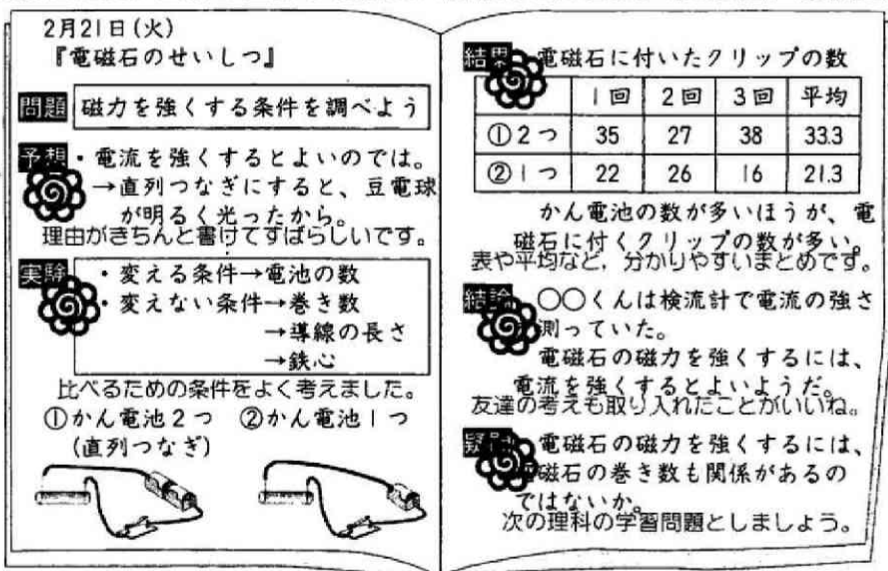 2月21日(火)
『電磁石のせいしつ』
問題 磁力を強くする条件を調べよう
予想・電流を強くするとよいのでは。
→直列つなぎにすると、豆電球
が明るく光ったから。
理由がきちんと書けてすばらしいです。
実験・変える条件→電池の数
・変えない条件→巻き数
→導線の長さ
→鉄心
比べるための条件をよく考えました。
①かん電池2つ ②かん電池1つ
(直列つなぎ)
結果 電磁石に付いたクリップの数
1回 2回 3回 平均
①2つ 35 27 38 33.3
②1つ 22 26 16 21.3
かん電池の数が多いほうが、電
磁石に付くクリップの数が多い。
表や平均など，分かりやすいまとめです。
結論 ○○くんは検流計で電流の強さ
測っていた。
電磁石の磁力を強くするには、
電流を強くするとよいようだ。
友達の考えも取り入れたことがいいね。
疑問 電磁石の磁力を強くするには、
磁石の巻き数も関係があるの
ではないか。
次の理科の学習問題としましょう。